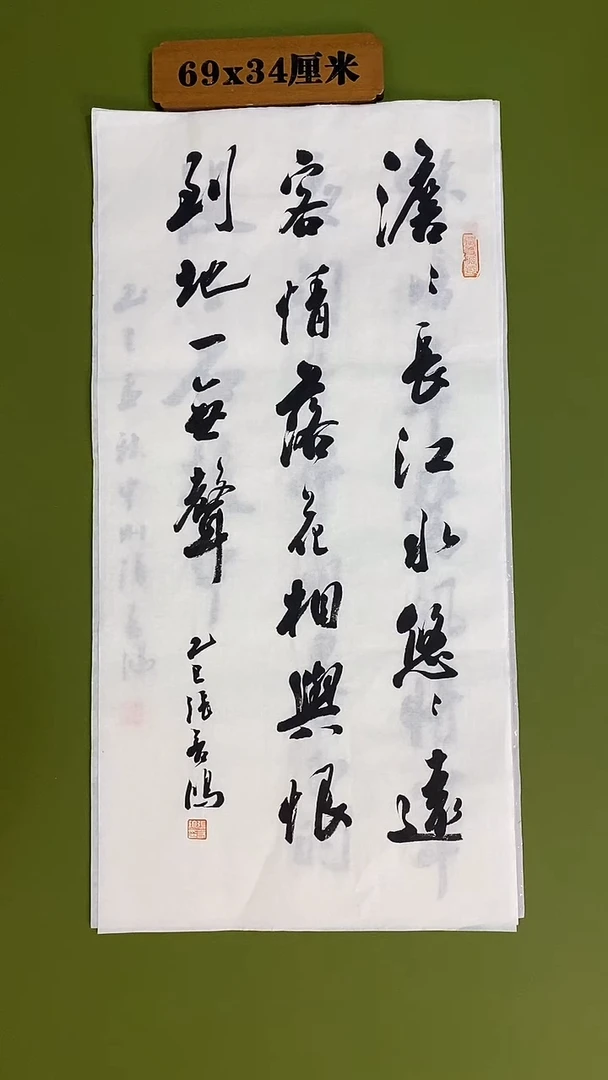 69x34厘米
澹〻長江水悠〻遠
客情落花相與恨
到地一無聲
乙巳張善鴻